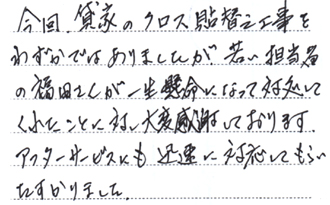 今回、貸家のクロス貼替え工事を
わずかではありましたが 若い担当者
の福田さんが一生懸命になって対処して
くれたことに対し大変感謝しております。
アフターサービスにも迅速に対応してもらい
たすかりました。